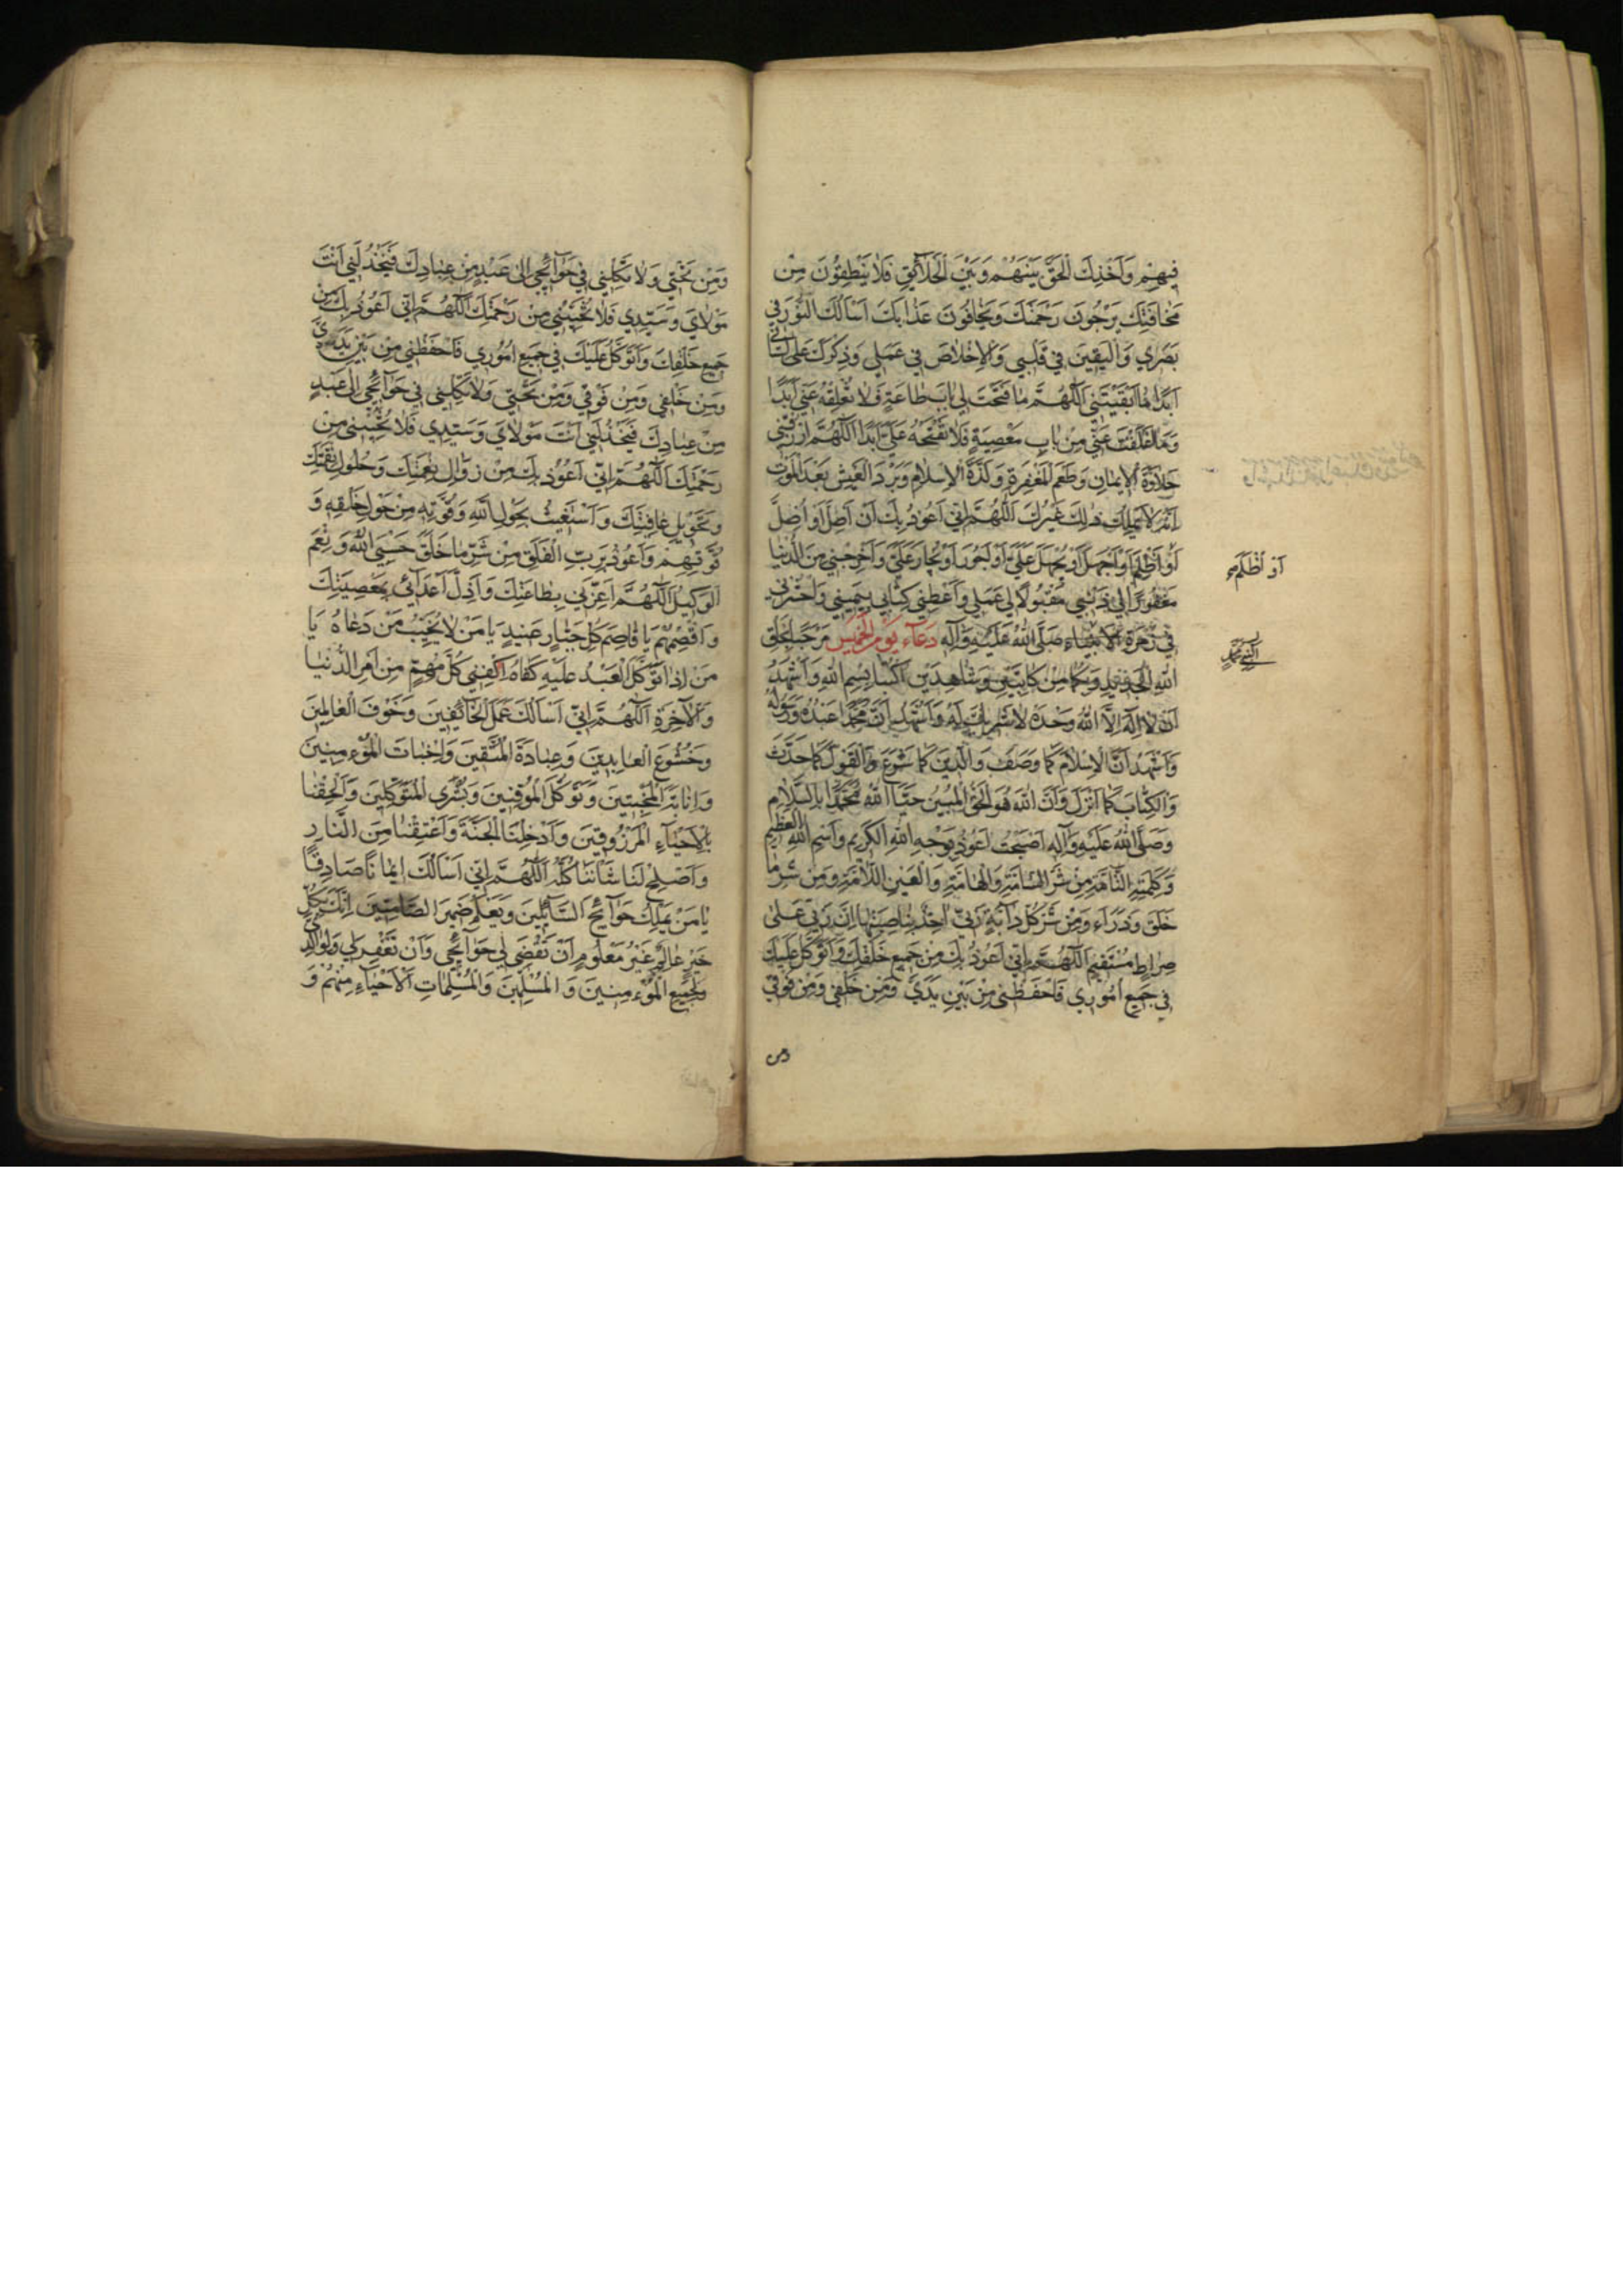 فِيهِمْ وَاَخْذِكَ الْحَقَّ بَيْنَهُمْ وَبَيْنَ الْخَلَآئِقِ فَلَا يَنْطِقُونَ مِنْ
مَخَافَتِكَ يَرْجُونَ رَحْمَتَكَ وَيَخَافُونَ عَذَابَكَ اَسْاَلُكَ النُّورَ فِي
بَصَرِي وَالْيَقِينَ فِي قَلْبِي وَالْاِخْلَاصَ فِي عَمَلِي وَذِكْرَكَ عَلَى لِسَانِي
اَبَدًا مَا اَبْقَيْتَنِي اَللّٰهُمَّ مَا فَتَحْتَ لِي بَابَ طَاعَةٍ فَلَا تُغْلِقْهُ عَنِّي اَبَدًا
وَمَا اَغْلَقْتَ عَنِّي مِنْ بَابِ مَعْصِيَةٍ فَلَا تَفْتَحْهُ عَلَيَّ اَبَدًا اَللّٰهُمَّ ارْزُقْنِي
حَلَاوَةَ الْاِيمَانِ وَطَعْمَ الْمَغْفِرَةِ وَلَذَّةَ الْاِسْلَامِ وَبَرْدَ الْعَيْشِ بَعْدَ الْمَوْتِ
اِنَّهُ لَا يَمْلِكُ ذٰلِكَ غَيْرُكَ اَللّٰهُمَّ اِنِّي اَعُوذُ بِكَ اَنْ اَضِلَّ اَوْ اُضِلَّ
اَوْ اَظْلِمَ اَوْ اَجْهَلَ اَوْ يُجْهَلَ عَلَيَّ اَوْ اَجُورَ اَوْ يُجَارَ عَلَيَّ وَاَخْرِجْنِي مِنَ الدُّنْيَا
اَوْ اُظْلَمَ
مَغْفُورًا لِي ذَنْبِي مَقْبُولًا لِي عَمَلِي وَاَعْطِنِي كِتَابِي بِيَمِينِي وَاحْشُرْنِي
فِي زُمْرَةِ الْاَنْبِيَاءِ صَلَّى اللّٰهُ عَلَيْهِ وَآلِهِ دُعَآءُ يَوْمِ الْخَمِيسِ مَرْحَبًا بِخَلْقِ
اللّٰهِ الْجَدِيدِ وَبِكُمَا مِنْ كَاتِبَيْنِ وَشَاهِدَيْنِ اُكْتُبَا بِسْمِ اللّٰهِ وَاَشْهَدُ
اَنْ لَا اِلٰهَ اِلَّا اللّٰهُ وَحْدَهُ لَا شَرِيكَ لَهُ وَاَشْهَدُ اَنَّ مُحَمَّدًا عَبْدُهُ وَرَسُولُهُ
وَاَشْهَدُ اَنَّ الْاِسْلَامَ كَمَا وَصَفَ وَالدِّينَ كَمَا شَرَعَ وَالْقَوْلَ كَمَا حَدَّثَ
وَالْكِتَابَ كَمَا اَنْزَلَ وَاَنَّ اللّٰهَ هُوَ الْحَقُّ الْمُبِينُ حَيَّا اللّٰهُ مُحَمَّدًا بِالسَّلَامِ
وَصَلَّى اللّٰهُ عَلَيْهِ وَآلِهِ اَصْبَحْتُ اَعُوذُ بِوَجْهِ اللّٰهِ الْكَرِيمِ وَاسْمِ اللّٰهِ الْعَظِيمِ
وَكَلِمَتِهِ التَّآمَّةِ مِنْ شَرِّ السَّامَّةِ وَالْهَامَّةِ وَالْعَيْنِ اللَّامَّةِ وَمِنْ شَرِّ مَا
خَلَقَ وَذَرَاَءَ وَمِنْ شَرِّ كُلِّ دَآبَّةٍ رَبِّي اٰخِذٌ بِنَاصِيَتِهَا اِنَّ رَبِّي عَلَى
صِرَاطٍ مُسْتَقِيمٍ اَللّٰهُمَّ اِنِّي اَعُوذُ بِكَ مِنْ جَمِيعِ خَلْقِكَ وَاَتَوَكَّلُ عَلَيْكَ
فِي جَمِيعِ اُمُورِي فَاحْفَظْنِي مِنْ بَيْنِ يَدَيَّ وَمِنْ خَلْفِي وَمِنْ فَوْقِي
وَمِنْ تَحْتِي وَلَا تَكِلْنِي فِي حَوَآئِجِي اِلٰى عَبْدٍ مِنْ عِبَادِكَ فَيَخْذُلَنِي اَنْتَ
مَوْلَايَ وَسَيِّدِي فَلَا تُخَيِّبْنِي مِنْ رَحْمَتِكَ اَللّٰهُمَّ اِنِّي اَعُوذُ بِكَ مِنْ
جَمِيعِ خَلْقِكَ وَاَتَوَكَّلُ عَلَيْكَ فِي جَمِيعِ اُمُورِي فَاحْفَظْنِي مِنْ بَيْنِ يَدَيَّ
وَمِنْ خَلْفِي وَمِنْ فَوْقِي وَمِنْ تَحْتِي وَلَا تَكِلْنِي فِي حَوَآئِجِي اِلٰى عَبْدٍ
مِنْ عِبَادِكَ فَيَخْذُلَنِي اَنْتَ مَوْلَايَ وَسَيِّدِي فَلَا تُخَيِّبْنِي مِنْ
رَحْمَتِكَ اَللّٰهُمَّ اِنِّي اَعُوذُ بِكَ مِنْ زَوَالِ نِعْمَتِكَ وَحُلُولِ نِقْمَتِكَ
وَتَحْوِيلِ عَافِيَتِكَ وَاَسْتَغِيثُ بِحَوْلِ اللّٰهِ وَقُوَّتِهِ مِنْ حَوْلِ خَلْقِهِ وَ
قُوَّتِهِمْ وَاَعُوذُ بِرَبِّ الْفَلَقِ مِنْ شَرِّ مَا خَلَقَ حَسْبِيَ اللّٰهُ وَنِعْمَ
الْوَكِيلُ اَللّٰهُمَّ اَعِزَّنِي بِطَاعَتِكَ وَاَذِلَّ اَعْدَآئِي بِمَعْصِيَتِكَ
وَاقْصِمْهُمْ يَا قَاصِمَ كُلِّ جَبَّارٍ عَنِيدٍ يَا مَنْ لَا يُخَيِّبُ مَنْ دَعَاهُ يَا
مَنْ اِذَا تَوَكَّلَ الْعَبْدُ عَلَيْهِ كَفَاهُ اكْفِنِي كُلَّ مُهِمٍّ مِنْ اَمْرِ الدُّنْيَا
وَالْآخِرَةِ اَللّٰهُمَّ اِنِّي اَسْاَلُكَ عَمَلَ الْخَآئِفِينَ وَخَوْفَ الْعَامِلِينَ
وَخُشُوعَ الْعَابِدِينَ وَعِبَادَةَ الْمُتَّقِينَ وَاِخْبَاتَ الْمُؤْمِنِينَ
وَاِنَابَةَ الْمُخْبِتِينَ وَتَوَكُّلَ الْمُوقِنِينَ وَبُشْرَى الْمُتَوَكِّلِينَ وَاَلْحِقْنَا
بِالْاَحْيَآءِ الْمَرْزُوقِينَ وَاَدْخِلْنَا الْجَنَّةَ وَاَعْتِقْنَا مِنَ النَّارِ
وَاَصْلِحْ لَنَا شَاْنَنَا كُلَّهُ اَللّٰهُمَّ اِنِّي اَسْاَلُكَ اِيمَانًا صَادِقًا
يَا مَنْ يَمْلِكُ حَوَآئِجَ السَّآئِلِينَ وَيَعْلَمُ ضَمِيرَ الصَّامِتِينَ اِنَّكَ بِكُلِّ
خَيْرٍ عَالِمٌ غَيْرُ مُعَلَّمٍ اَنْ تَقْضِيَ لِي حَوَآئِجِي وَاَنْ تَغْفِرَ لِي وَلِوَالِدَيَّ
وَلِجَمِيعِ الْمُؤْمِنِينَ وَالْمُسْلِمِينَ وَالْمُسْلِمَاتِ الْاَحْيَآءِ مِنْهُمْ وَ